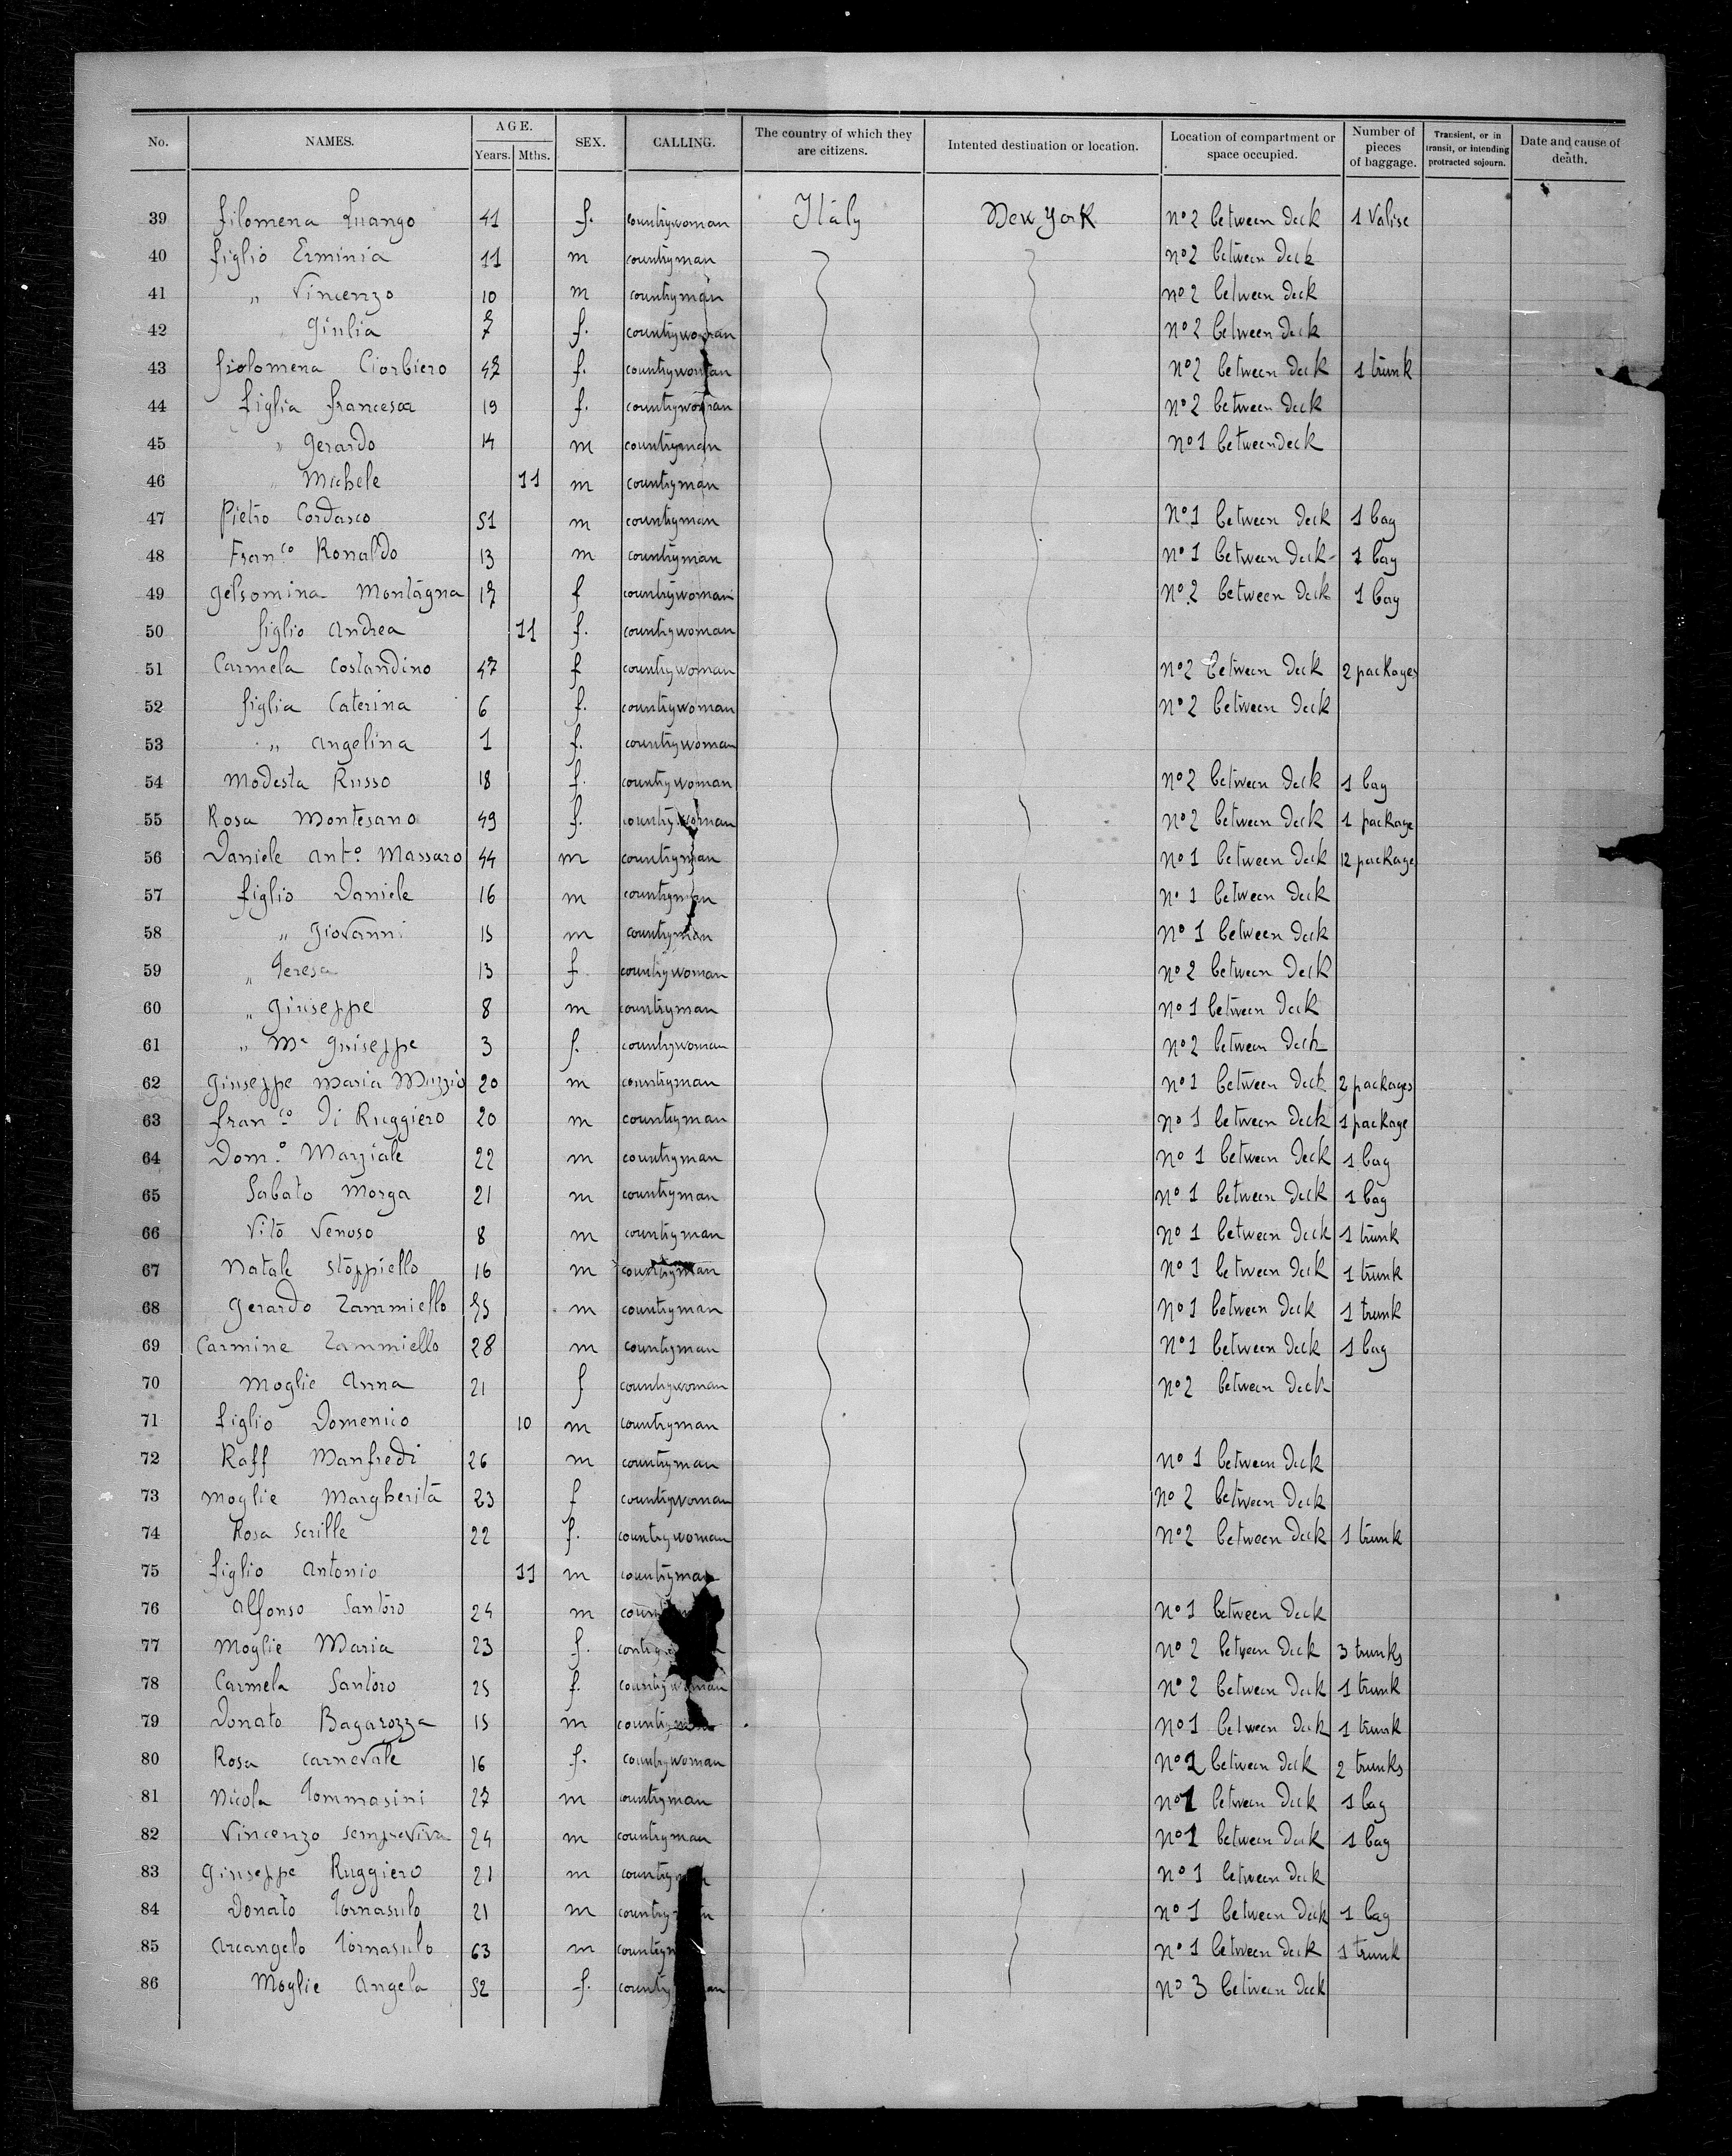 No. NAMES. AGE. Years. Mths. SEX. CALLING. The country of which they are citizens. Intented destination or location. Location of compartment or space occupied. Number of pieces of baggage. Transient, or in transit, or intending protracted sojourn. Date and cause of death.
39 filomena Luango 41 f. countrywoman Italy New York No 2 between deck 1 Valise
40 figlio Erminia 11 m countryman No 2 between deck
41 " Vincenzo 10 m countryman No 2 between deck
42 Giulia 7 f. countrywoman No 2 between deck
43 filomena Ciorbiero 47 f. countrywoman No 2 between deck 1 trunk
44 figlia francesca 19 f. countrywoman No 2 between deck
45 " Gerardo 14 m countryman No 1 between deck
46 " Michele 11 m countryman
47 Pietro Cordasco 51 m countryman No 1 between deck 1 bag
48 Fran.co Ronaldo 13 m countryman No 1 between deck 1 bag
49 Gelsomina Montagna 17 f countrywoman No 2 between deck 1 bag
50 figlio Andrea 11 f. countrywoman
51 Carmela Costandino 47 f countrywoman No 2 between deck 2 packages
52 figlia Caterina 6 f. countrywoman No 2 between deck
53 " Angelina 1 f. countrywoman
54 Modesta Russo 18 f. countrywoman No 2 between deck 1 bag
55 Rosa Montesano 49 f. countrywoman No 2 between deck 1 package
56 Daniele Ant.o Massaro 44 m countryman No 1 between deck 12 package
57 figlio Daniele 16 m countryman No 1 between deck
58 " Giovanni 15 m countryman No 1 between deck
59 " Teresa 13 f countrywoman No 2 between deck
60 " Giuseppe 8 m countryman No 1 between deck
61 " Ma Guiseppe 3 f. countrywoman No 2 between deck
62 Giuseppe Maria Muzzio 20 m countryman No 1 between deck 2 packages
63 fran.co Di Ruggiero 20 m countryman No 1 between deck 1 package
64 Dom.o Marziale 22 m countryman No 1 between deck 1 bag
65 Sabato Morga 21 m countryman No 1 between deck 1 bag
66 Vito Venoso 8 m countryman No 1 between deck 1 trunk
67 Natale Stoppiello 16 m countryman No 1 between deck 1 trunk
68 Gerardo Zammiello m countryman No 1 between deck 1 trunk
69 Carmine Zammiello 28 m countryman No 1 between deck 1 bag
70 Moglie Anna 21 f countrywoman No 2 between deck
71 figlio Domenico 10 m countryman
72 Raff Manfredi 26 m countryman No 1 between deck
73 Moglie Margherita 23 f countrywoman No 2 between deck
74 Rosa Scrille 22 f. countrywoman No 2 between deck 1 trunk
75 figlio Antonio 11 m countryman
76 Alfonso Santoro 24 m No 1 between deck
77 Moglie Maria 23 f. No 2 between deck 3 trunks
78 Carmela Santoro 25 f. countrywoman No 2 between deck 1 trunk
79 Donato Bagarozza 15 m countryman No 1 between deck 1 trunk
80 Rosa Carnevale 16 f. countrywoman No 2 between deck 2 trunks
81 Nicola Tommasini 27 m countryman No 1 between deck 1 bag
82 Vincenzo Sempreviva 24 m countryman No 1 between deck 1 bag
83 Giuseppe Ruggiero 21 m countryman No 1 between deck
84 Donato Tornasulo 21 m countryman No 1 between deck 1 bag
85 Arcangelo Tornasulo 63 m No 1 between deck 1 trunk
86 Moglie Angela 52 f. No 3 between deck